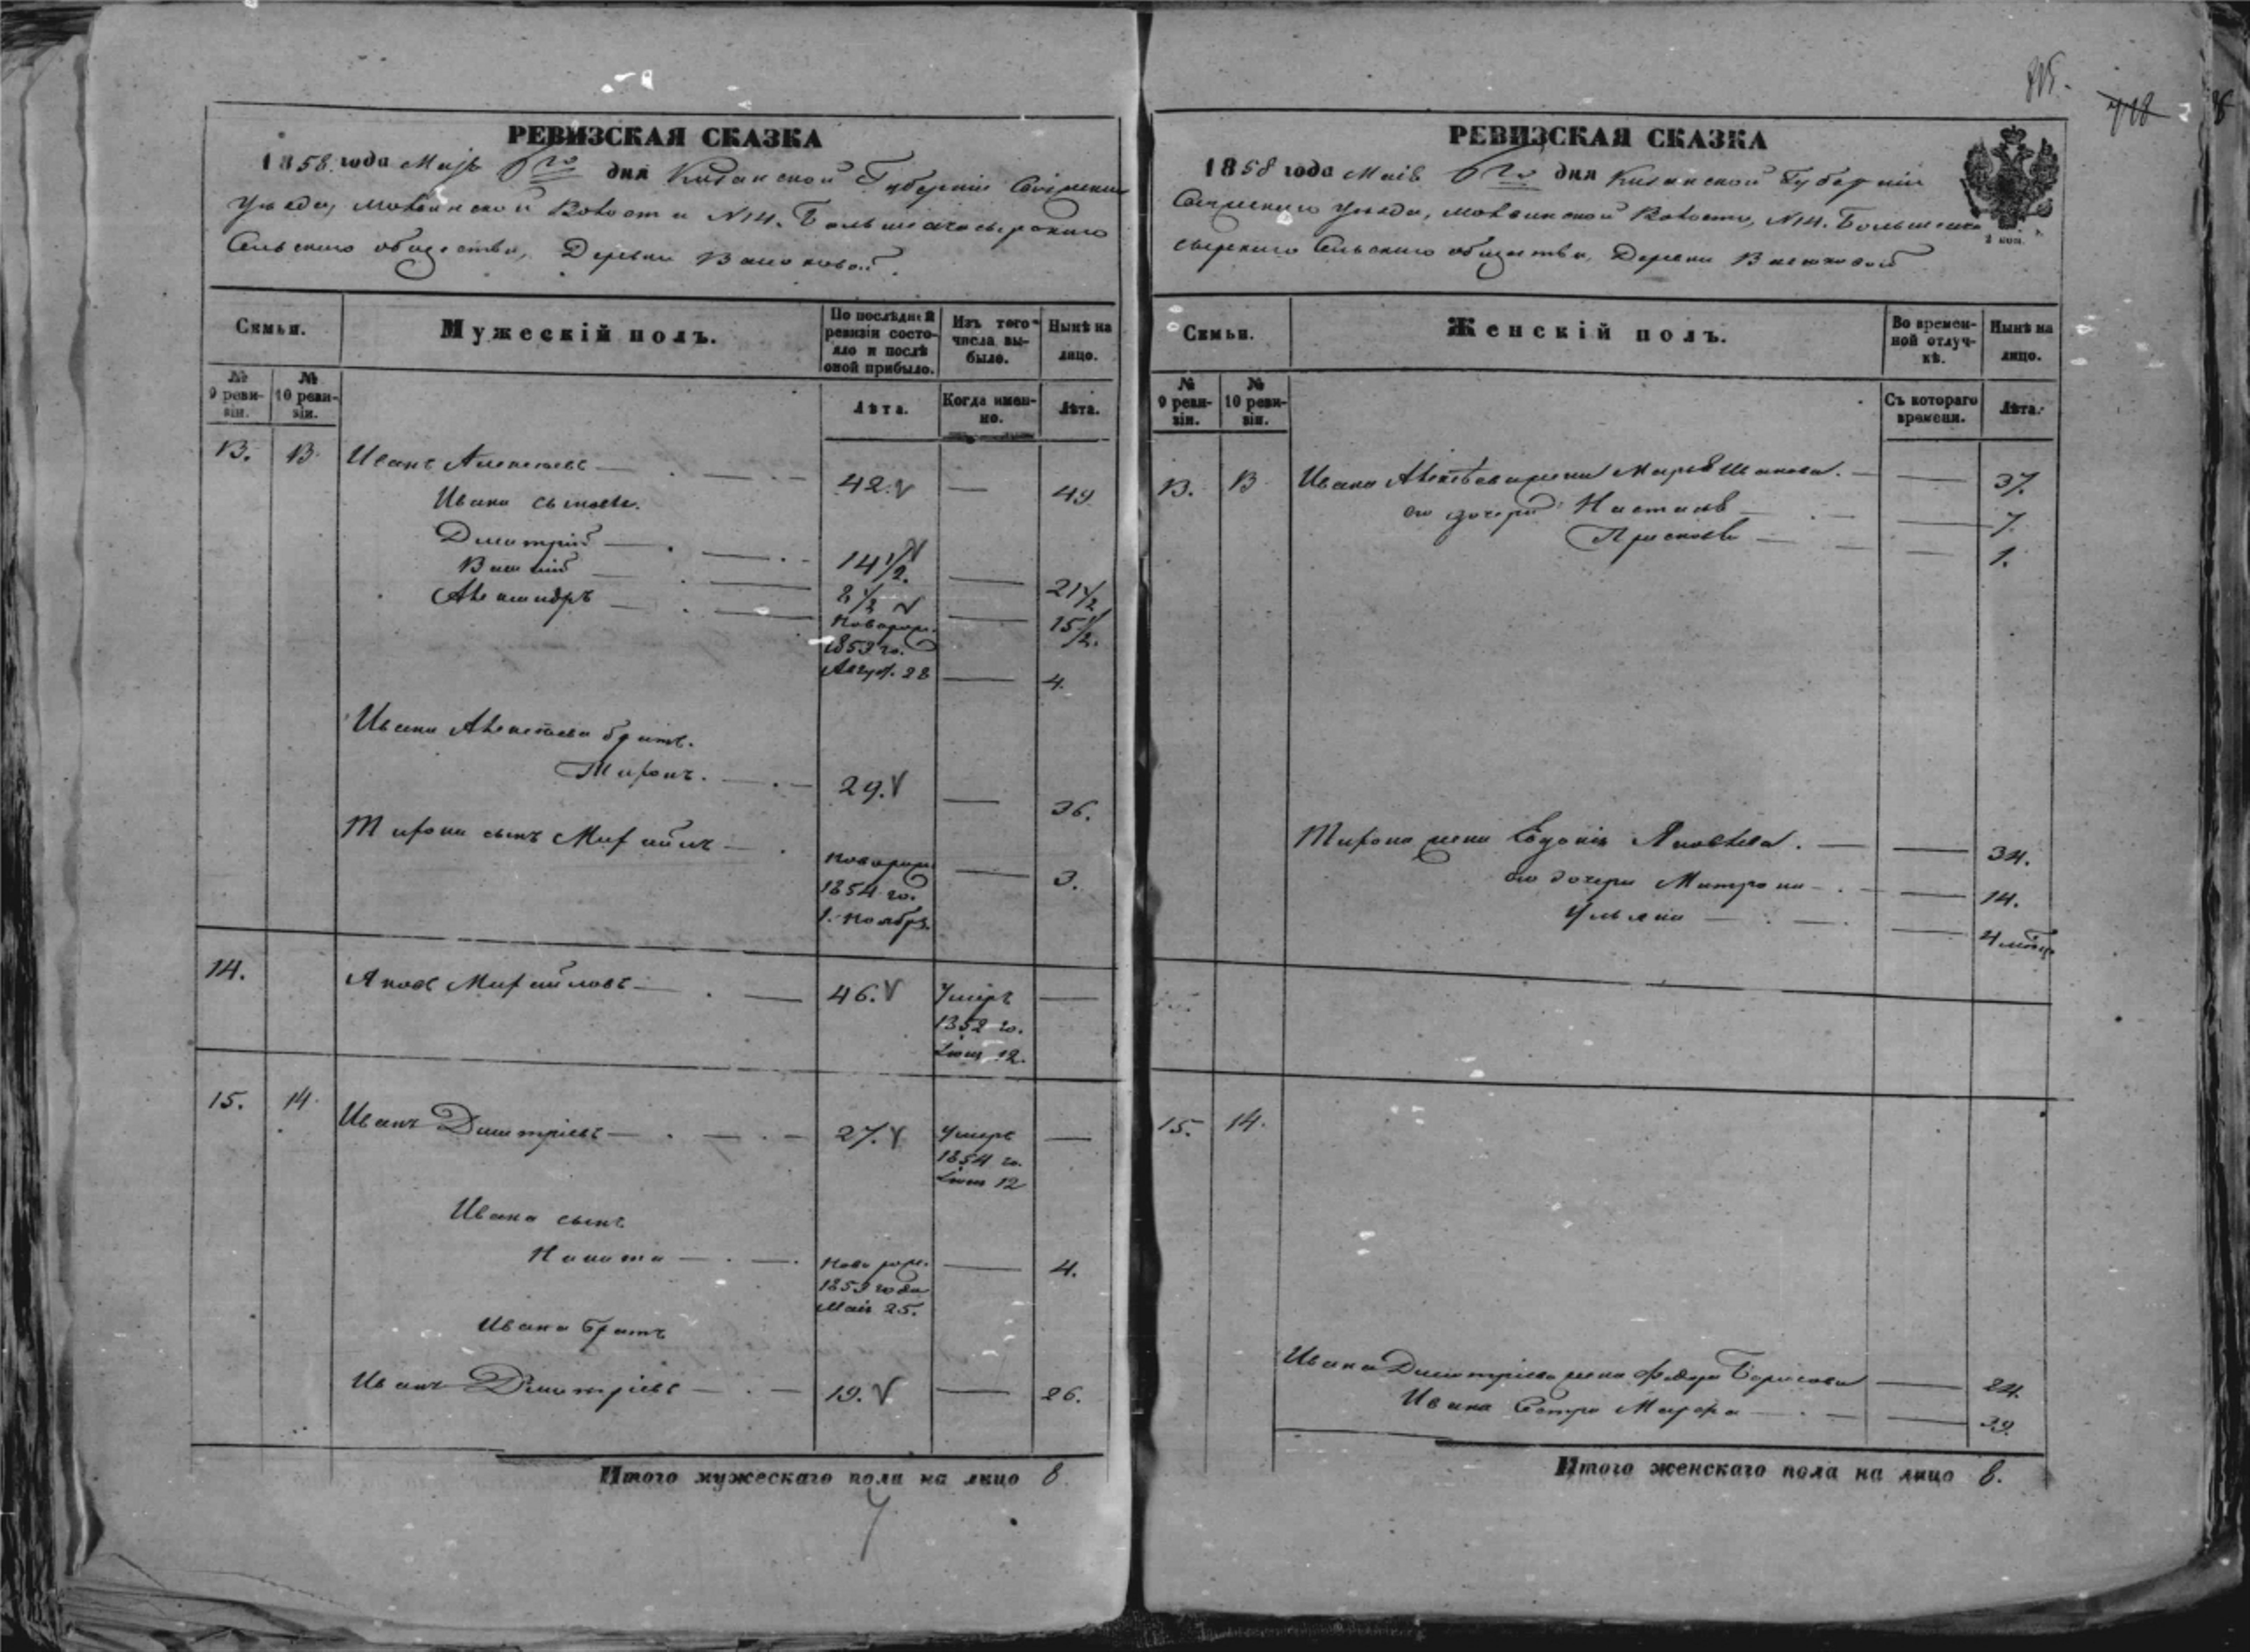 РЕВИЗСКАЯ СКАЗКА
1858 года Маія 6го дня Казанской Губерніи Свіяжскаго
Уѣзда, Молвинской Волости №14. Большеачасырскаго
Сельскаго общества, Деревни Васюковой.
Семьи.
Мужескій полъ.
По послѣдней ревизіи состояло и послѣ оной прибыло.
Изъ того числа выбыло.
Нынѣ на лицо.
№ 9 ревизіи.
№ 10 ревизіи.
Лѣта.
Когда именно.
Лѣта.
13. 13 Иванъ Алексѣевъ 42. — 49
Ивана сыновья.
Дмитрій 14 1/2. — 21 1/2
Василій 8 1/2 — 15 1/2.
Александръ Новорож.
1853 го.
Авгус. 28 — 4.
Ивана Алексѣева братъ.
Миронъ. 29. — 36.
Мирона сынъ Михайлъ Новорож.
1854 го. — 3.
1. Ноября.
14. Яковъ Михайловъ 46. Умеръ —
1852 го.
12.
15. 14 Иванъ Дмитріевъ 27. Умеръ —
1854 го.
12
Ивана сынъ
Никита Новорож. — 4.
1853 года
Маія 25.
Ивана братъ
Иванъ Дмитріевъ 19. — 26.
Итого мужескаго пола на лицо 8
815.
718
РЕВИЗСКАЯ СКАЗКА
1858 года Маія 6го дня Казанской Губерніи
Свіяжскаго Уѣзда, Молвинской Волости, №14. Большеача
сырскаго Сельскаго общества, Деревни Васюковой
2 коп.
Семьи.
Женскій полъ.
Во временной отлучкѣ.
Нынѣ на лицо.
№ 9 ревизіи.
№ 10 ревизіи.
Съ котораго времени.
Лѣта.
13. 13 Ивана Алексѣева жена Марья — 37.
его дочери Настасья — 7.
Прасковья — 1.
Мирона жена Евдокія Яковлева. — 34.
его дочери Матрона — 14.
Ульяна — 4 мѣсяц.
15. 14.
Ивана Дмитріева жена Федора Борисова — 24.
Ивана сестра Марфа — 39.
Итого женскаго пола на лицо 8.